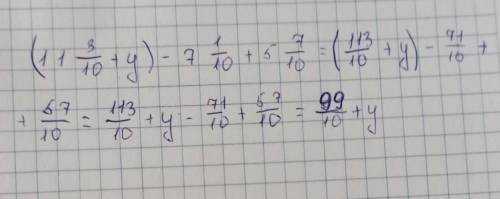 (11 3/10 + y) - 7 1/10 + 5 7/10 = (113/10 + y) - 71/10 +
+ 57/10 = 113/10 + y - 71/10 + 57/10 = 99/10 + y